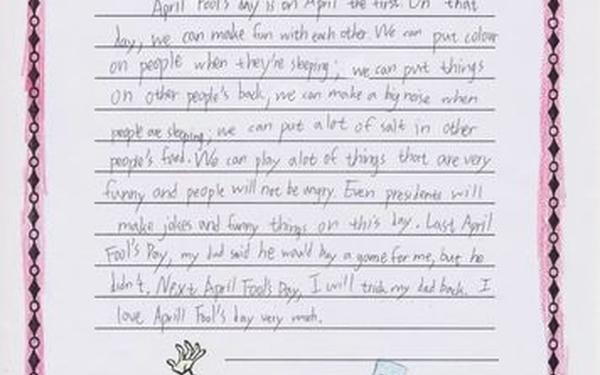 April Fool's day is on April the first. On that
day, we can make fun with each other. We can put colour
on people when they're sleeping; we can put things
on other people's back, we can make a big noise when
people are sleeping, we can put a lot of salt in other
people's food. We can play alot of things that are very
funny and people will not be angry. Even presidents will
make jokes and funny things on this day. Last April
Fool's Day, my dad said he would buy a game for me, but he
didn't. Next April Fool's Day, I will trick my dad back. I
love Aprill Fool's day very much.